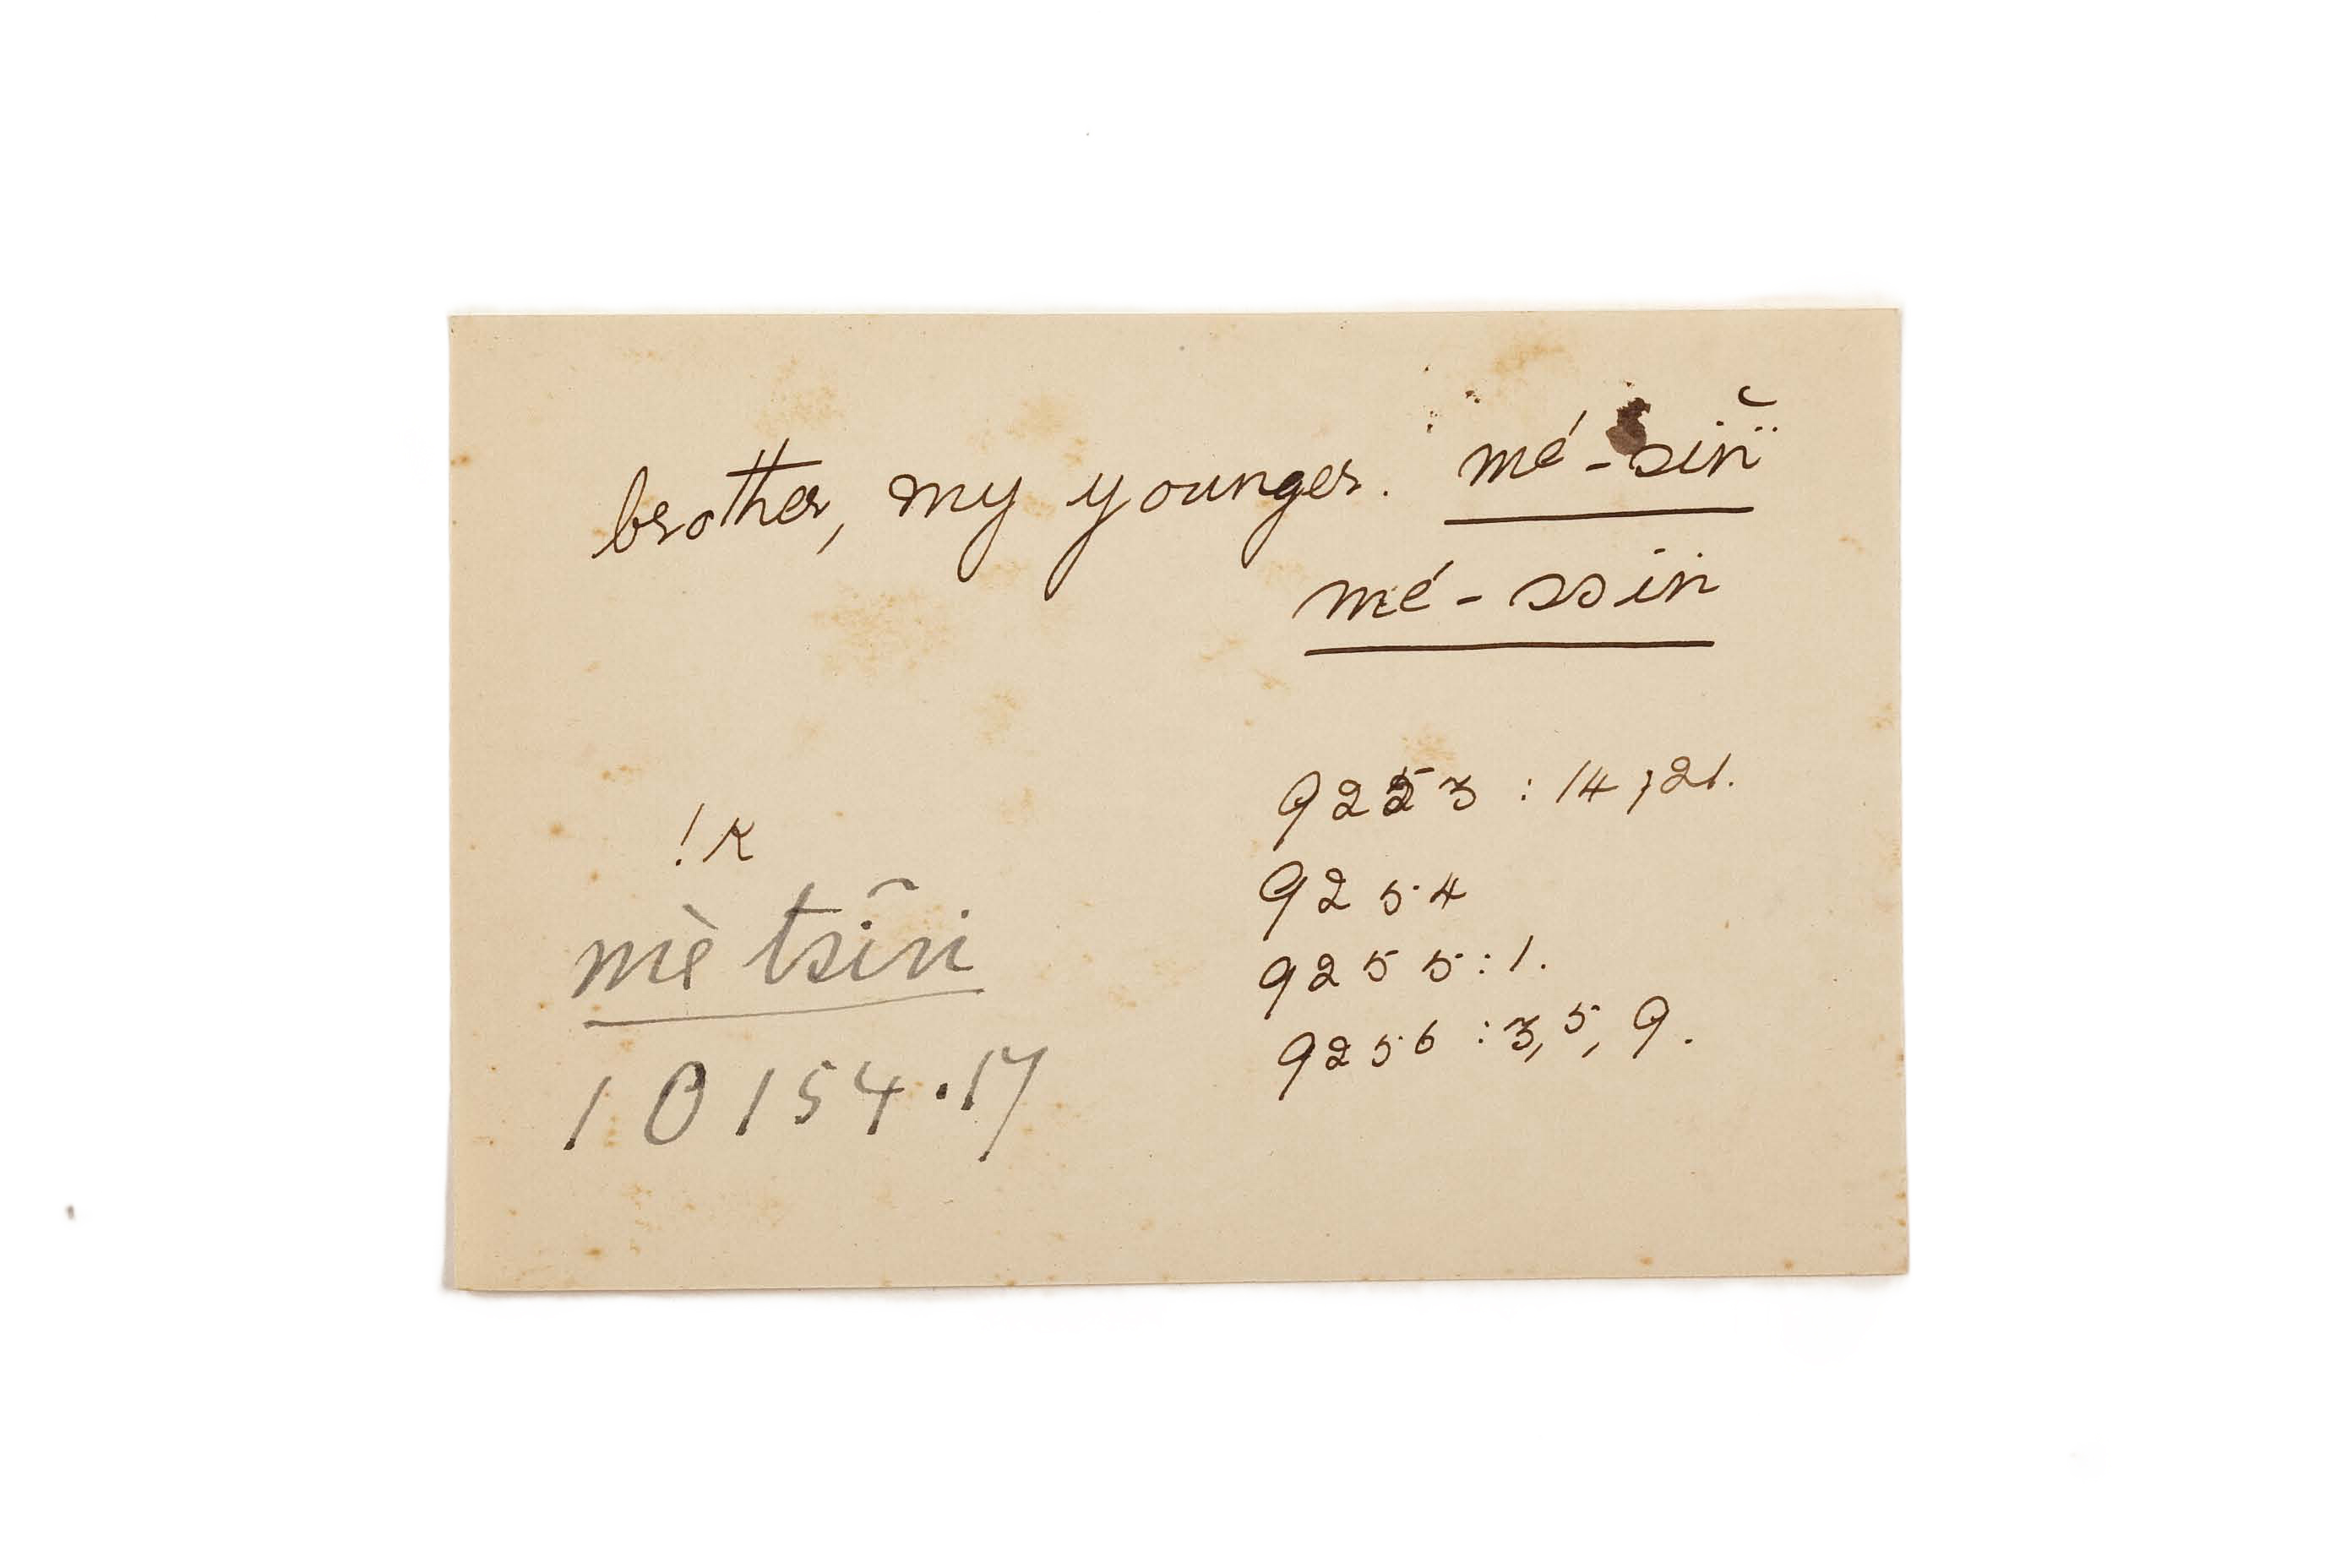 brother, my younger. mé-sin̈̆
mé-ssiṅ
9253 : 14, 21.
9254
9255 : 1.
9256 : 3, 5, 9.
!k
mè tsîṅ
10154.17